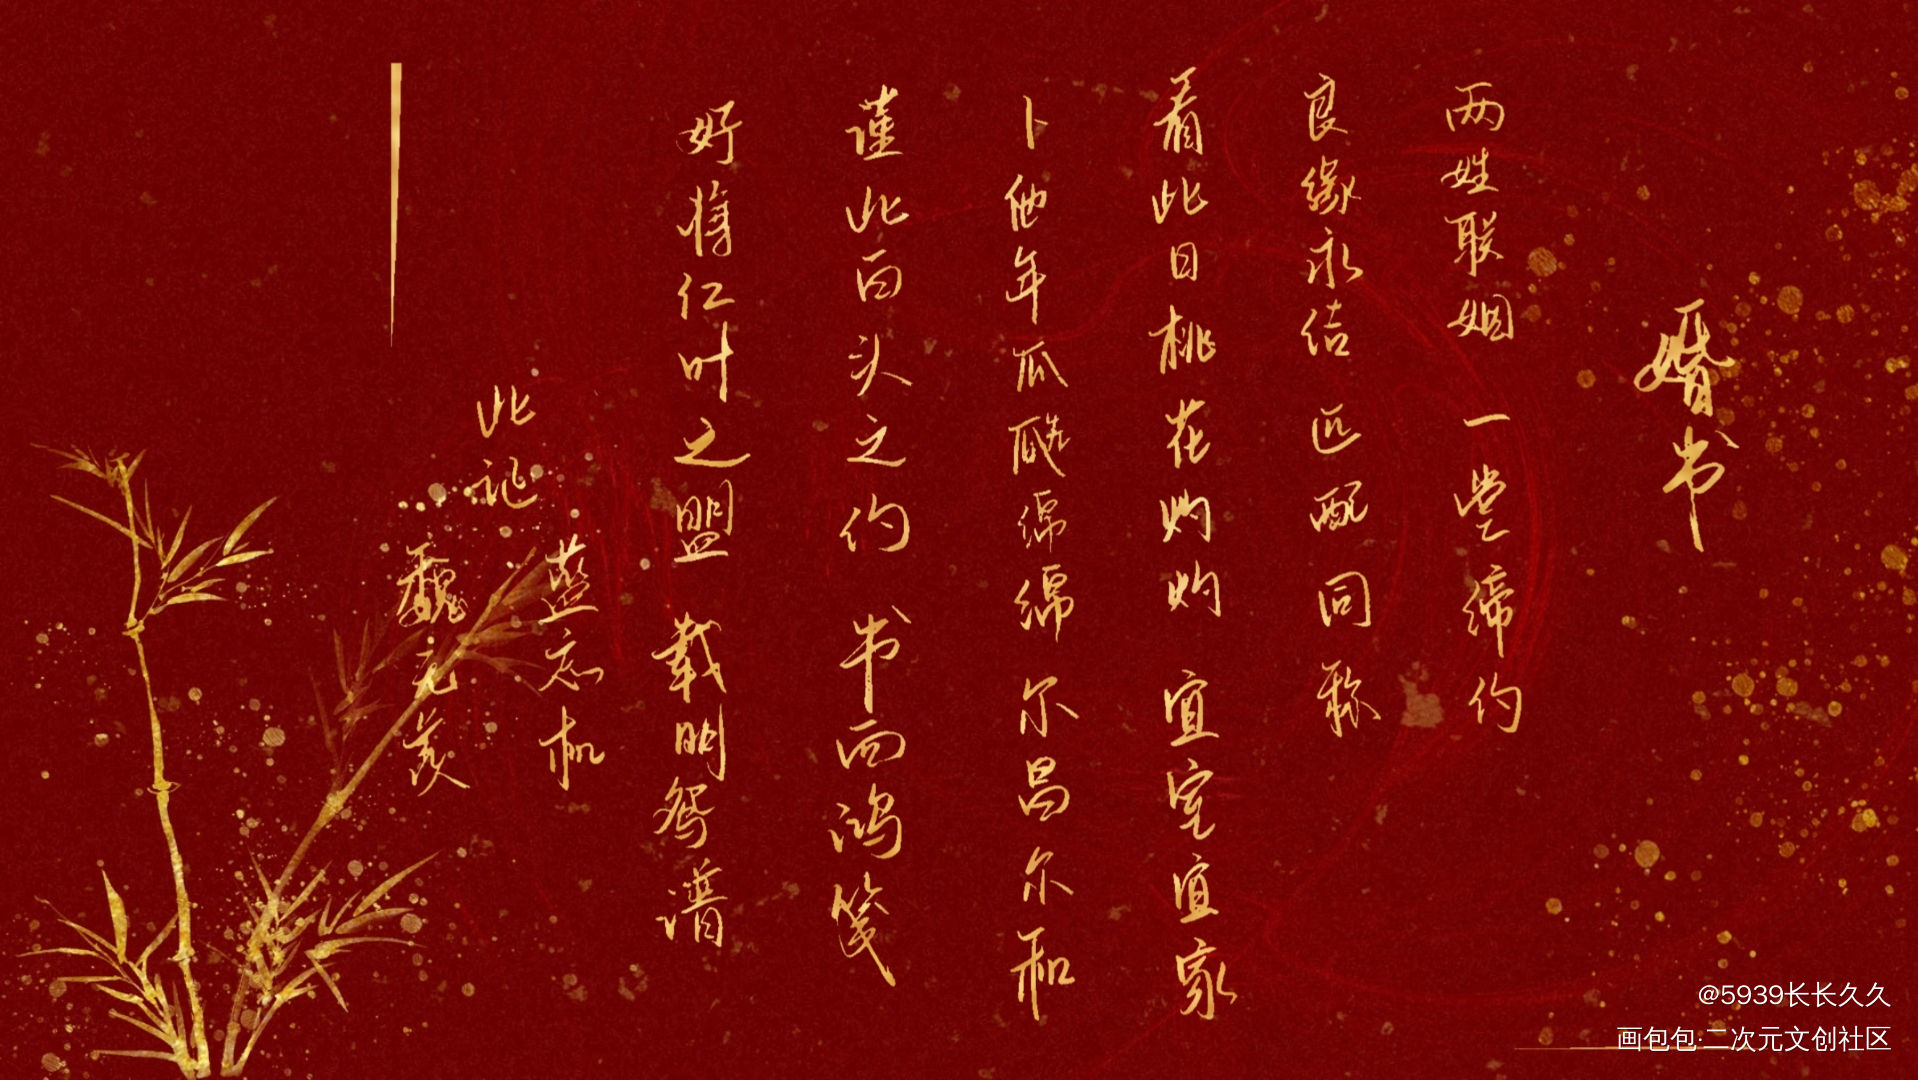 婚书
两姓联姻 一堂缔约
良缘永结 匹配同称
看此日桃花灼灼 宜室宜家
卜他年瓜瓞绵绵 尔昌尔和
谨此白头之约 书向鸿笺
好将红叶之盟 载明鸳谱
此证
蓝忘机
魏无羡
@5939长长久久
画包包·二次元文创社区